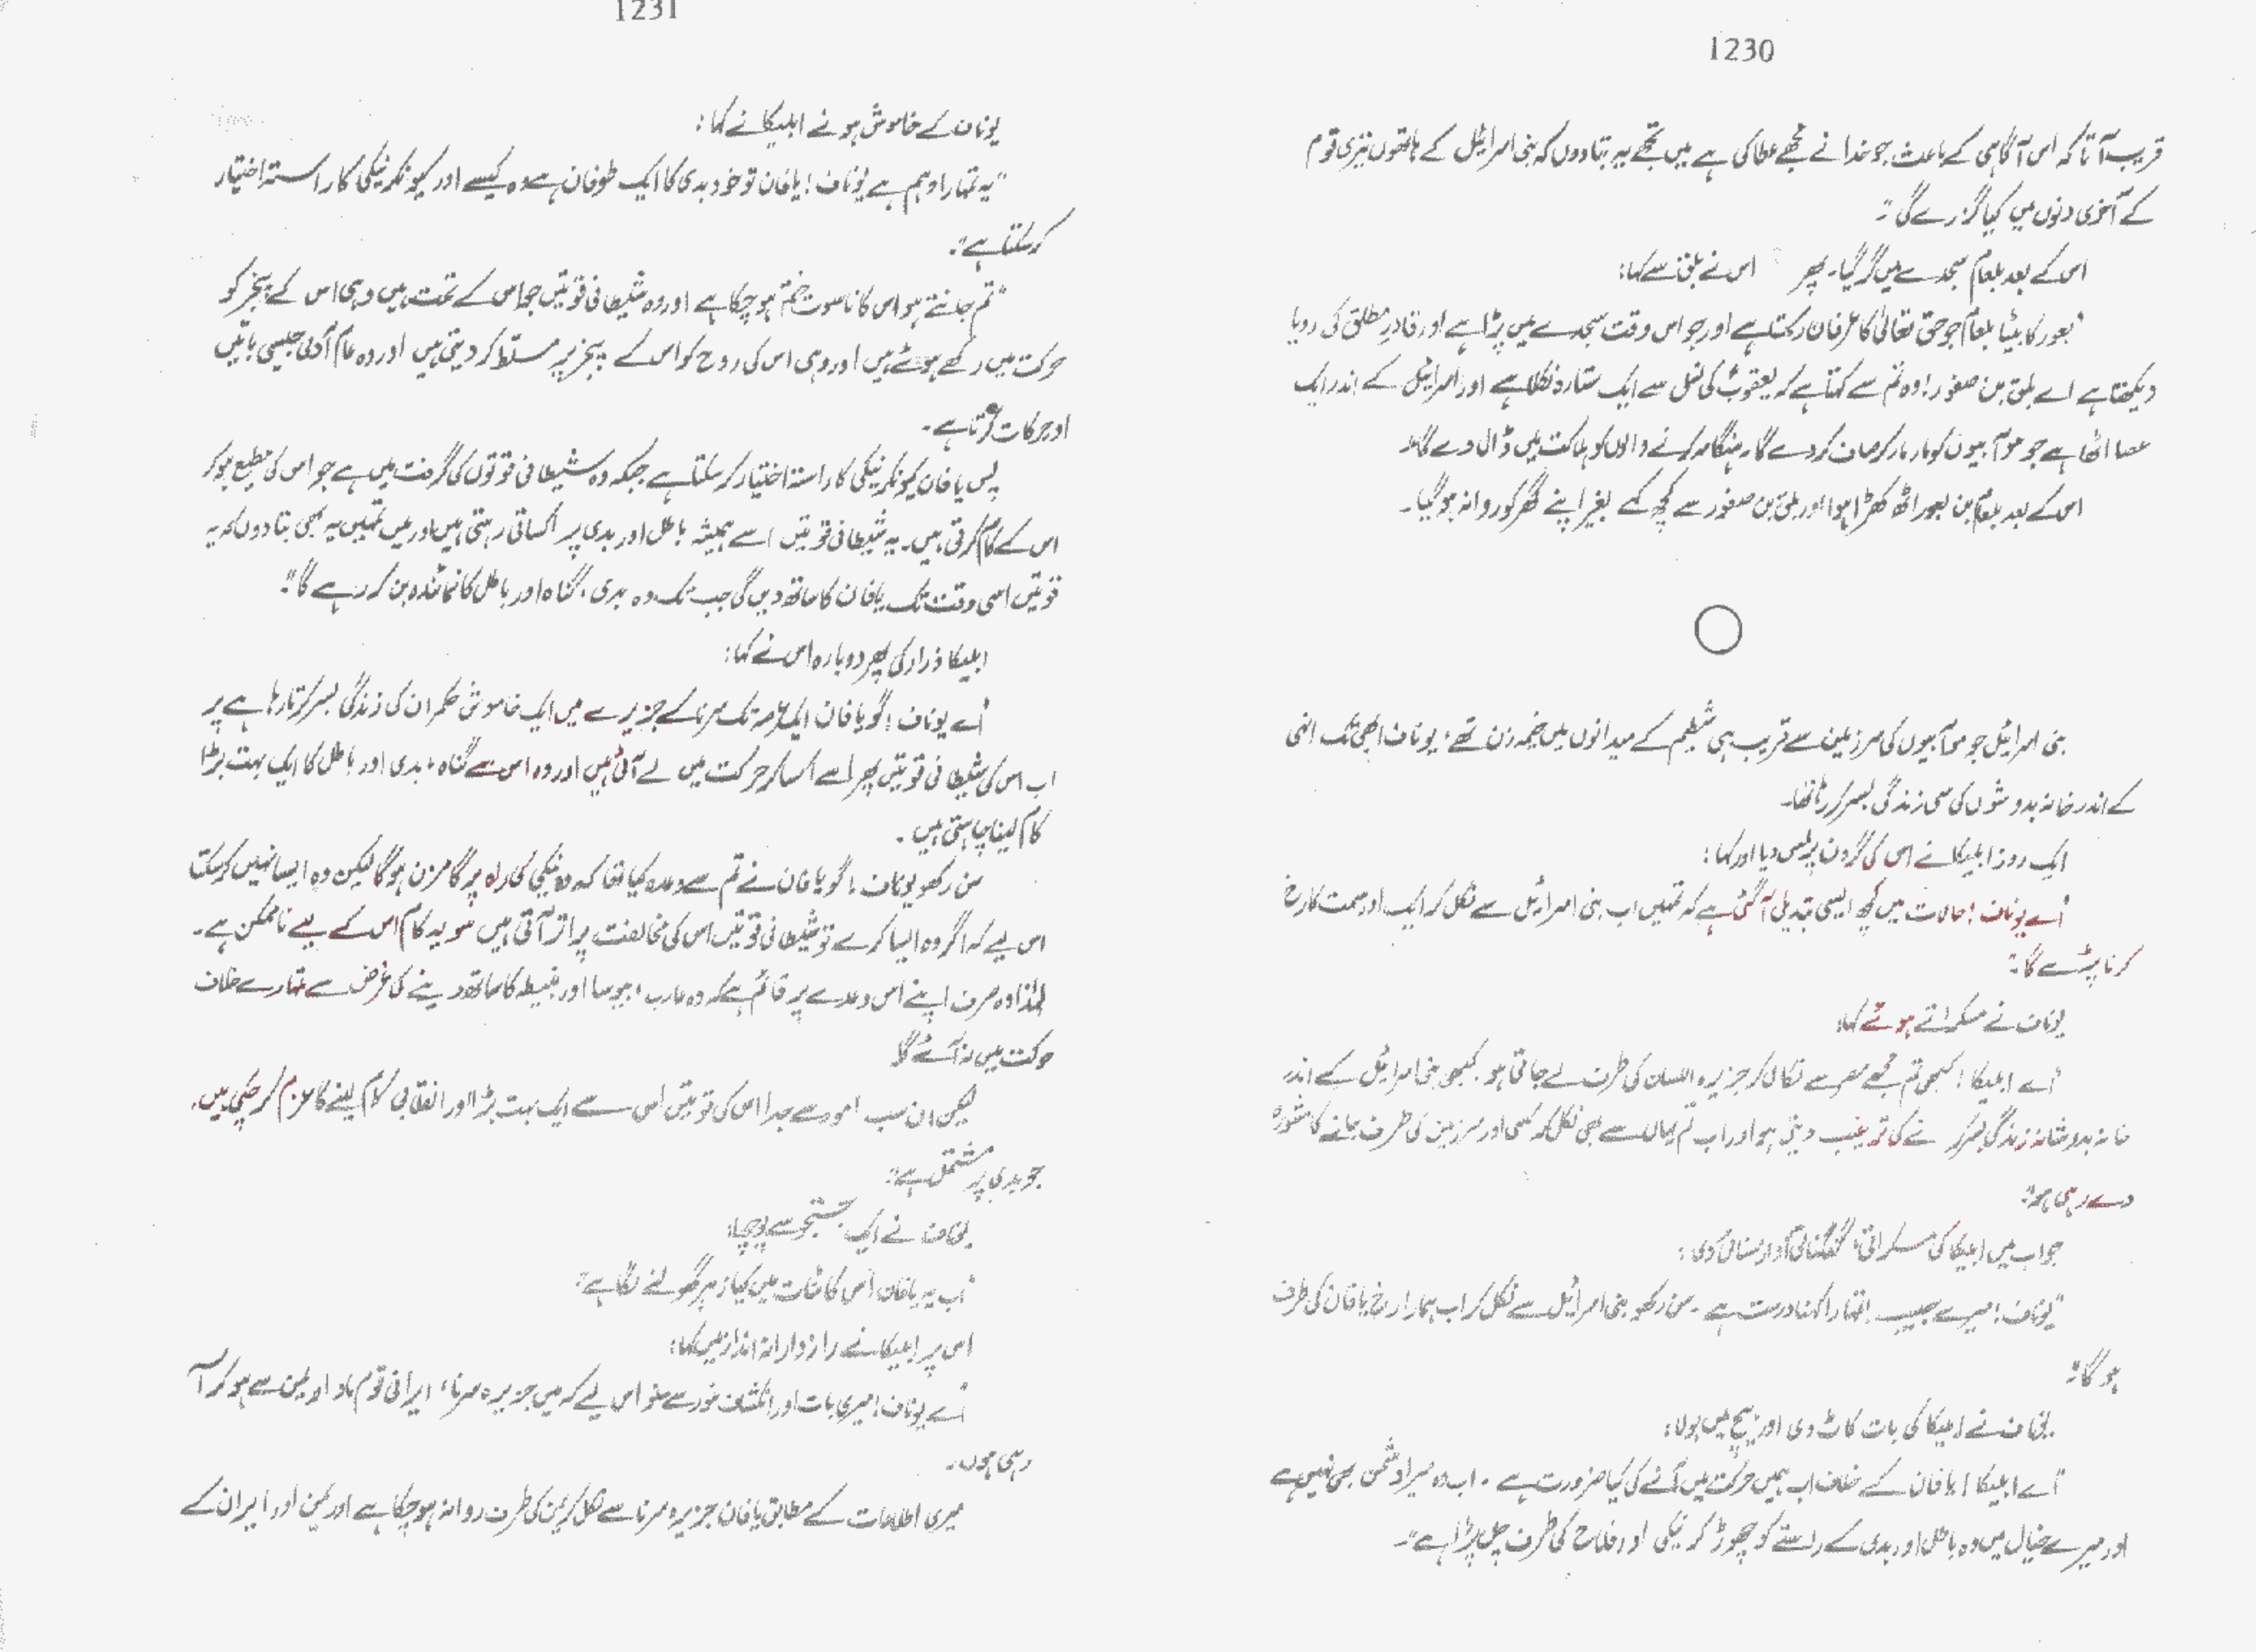 1230
قریب آ تا کہ اس آگاہی کے باعث جو خدا نے مجھے عطا کی ہے میں تجھے یہ بتا دوں کہ بنی اسرائیل کے ہاتھوں تیری قوم
کے آخری دنوں میں کیا گزرے گی"۔
اس کے بعد بلعام سجدے میں گر گیا۔ پھر اس نے بلق سے کہا:
"بعور کا بیٹا بلعام جو حق تعالیٰ کا عرفان رکھتا ہے اور جو اس وقت سجدے میں پڑا ہے اور قادرِ مطلق کی رویا
دیکھتا ہے اے بلق بن صفور! وہ تم سے کہتا ہے کہ یعقوبؑ کی نسل سے ایک ستارہ نکلا ہے اور اسرائیل کے اندر ایک
عصا اٹھا ہے جو موآبیوں کو مار مار کر صاف کر دے گا۔ ہنگامہ کرنے والوں کو ہلاکت میں ڈال دے گا"۔
اس کے بعد بلعام بن بعور اٹھ کھڑا ہوا اور بلق بن صفور سے کچھ کہے بغیر اپنے گھر کو روانہ ہو گیا۔
بنی اسرائیل جو موآبیوں کی سرزمین سے قریب ہی شطیم کے میدانوں میں خیمہ زن تھے، یوناف ابھی تک انہی
کے اندر خانہ بدوشوں کی سی زندگی بسر کر رہا تھا۔
ایک روز ابلیکا نے اس کی گردن پر لمس دیا اور کہا:
"اے یوناف! حالات میں کچھ ایسی تبدیلی آ گئی ہے کہ تمہیں اب بنی اسرائیل سے نکل کر ایک اور سمت کا رخ
کرنا پڑے گا"۔
یوناف نے مسکراتے ہوئے کہا:
"اے ابلیکا! کبھی تم مجھے مصر سے نکال کر جزیرہ السان کی طرف لے جاتی ہو۔ کبھی بنی اسرائیل کے اندر
خانہ بدوشانہ زندگی بسر کرنے کی ترغیب دیتی ہو اور اب تم یہاں سے بھی نکل کر کسی اور سرزمین کی طرف جانے کا مشورہ
دے رہی ہو"۔
جواب میں ابلیکا کی مسکراتی، گنگناتی آواز سنائی دی:
"یوناف! میرے حبیب! تمہارا کہنا درست ہے۔ سن رکھو بنی اسرائیل سے نکل کر اب ہمارا رخ یافان کی طرف
ہو گا"۔
یوناف نے ابلیکا کی بات کاٹ دی اور بیچ میں بولا:
"اے ابلیکا! یافان کے خلاف اب ہمیں حرکت میں آنے کی کیا ضرورت ہے۔ اب وہ میرا دشمن بھی نہیں ہے
اور میرے خیال میں وہ باطل اور بدی کے راستے کو چھوڑ کر نیکی اور فلاح کی طرف چل پڑا ہے"۔
1231
یوناف کے خاموش ہونے ابلیکا نے کہا:
"یہ تمہارا وہم ہے یوناف! یافان تو خود بدی کا ایک طوفان ہے وہ کیسے اور کیونکر نیکی کا راستہ اختیار
کر سکتا ہے"۔
"تم جانتے ہو اس کا ناسوت ختم ہو چکا ہے اور وہ شیطانی قوتیں جو اس کے تحت ہیں وہی اس کے پنجر کو
حرکت میں رکھے ہوئے ہیں اور وہی اس کی روح کو اس کے پنجر پر مسلّط کر دیتی ہیں اور وہ عام آدمی جیسی باتیں
اور حرکات کرتا ہے۔
پس یافان کیونکر نیکی کا راستہ اختیار کر سکتا ہے جبکہ وہ شیطانی قوتوں کی گرفت میں ہے جو اس کی مطیع ہو کر
اس کے کام کرتی ہیں۔ یہ شیطانی قوتیں اسے ہمیشہ باطل اور بدی پر اکساتی رہتی ہیں اور میں تمہیں یہ بھی بتا دوں کہ یہ
قوتیں اسی وقت تک یافان کا ساتھ دیں گی جب تک وہ بدی، گناہ اور باطل کا نمائندہ بن کر رہے گا"۔
ابلیکا ذرا رکی پھر دوبارہ اس نے کہا:
"اے یوناف! گو یافان ایک عرصہ تک سرنا کے جزیرے میں ایک خاموش حکمران کی زندگی بسر کرتا رہا ہے پر
اب اس کی شیطانی قوتیں پھر اسے اکسا کر حرکت میں لے آئی ہیں اور وہ اس سے گناہ، بدی اور باطل کا ایک بہت بڑا
کام لینا چاہتی ہیں۔
سن رکھو یوناف! گو یافان نے تم سے وعدہ کیا تھا کہ وہ نیکی کی راہ پر گامزن ہو گا لیکن وہ ایسا نہیں کر سکتا
اس لیے کہ اگر وہ ایسا کرے تو شیطانی قوتیں اس کی مخالفت پر اتر آتی ہیں سو یہ کام اس کے لیے ناممکن ہے۔
لہٰذا وہ صرف اپنے اس وعدے پر قائم ہے کہ وہ عارب، بیوسا اور نبیطہ کا ساتھ دینے کی غرض سے تمہارے خلاف
حرکت میں نہ آئے گا۔
لیکن ان سب امور سے جدا اس کی قوتیں اس سے ایک بہت بڑا اور انقلابی کام لینے کا عزم کر چکی ہیں۔
جو بدی پر مشتمل ہے"۔
یوناف نے ایک جستجو سے پوچھا:
"اب یہ یافان اس کائنات میں کیا زہر گھولنے لگا ہے"
اس پر ابلیکا نے رازدارانہ انداز میں کہا:
"اے یوناف! میری بات اور انکشاف غور سے سنو اس لیے کہ میں جزیرہ سرنا، ایرانی قوم ماد اور یمن سے ہو کر آ
رہی ہوں۔
میری اطلاعات کے مطابق یافان جزیرہ سرنا سے نکل کر یمن کی طرف روانہ ہو چکا ہے اور یمن اور ایران کے